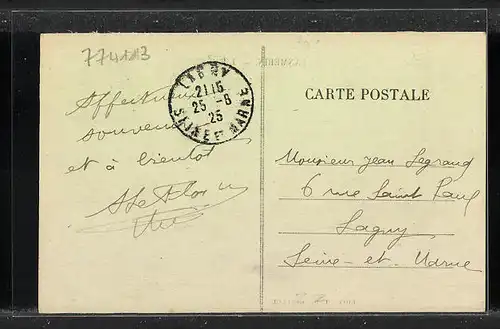 774113
LAGNY
21 15
25 - 8
25
SEINE ET MARNE
CARTE POSTALE
Affectueux
souvenir
et à bientôt
Monsieur Jean Legrand
6 rue Saint Paul
Lagny
Seine-et-Marne